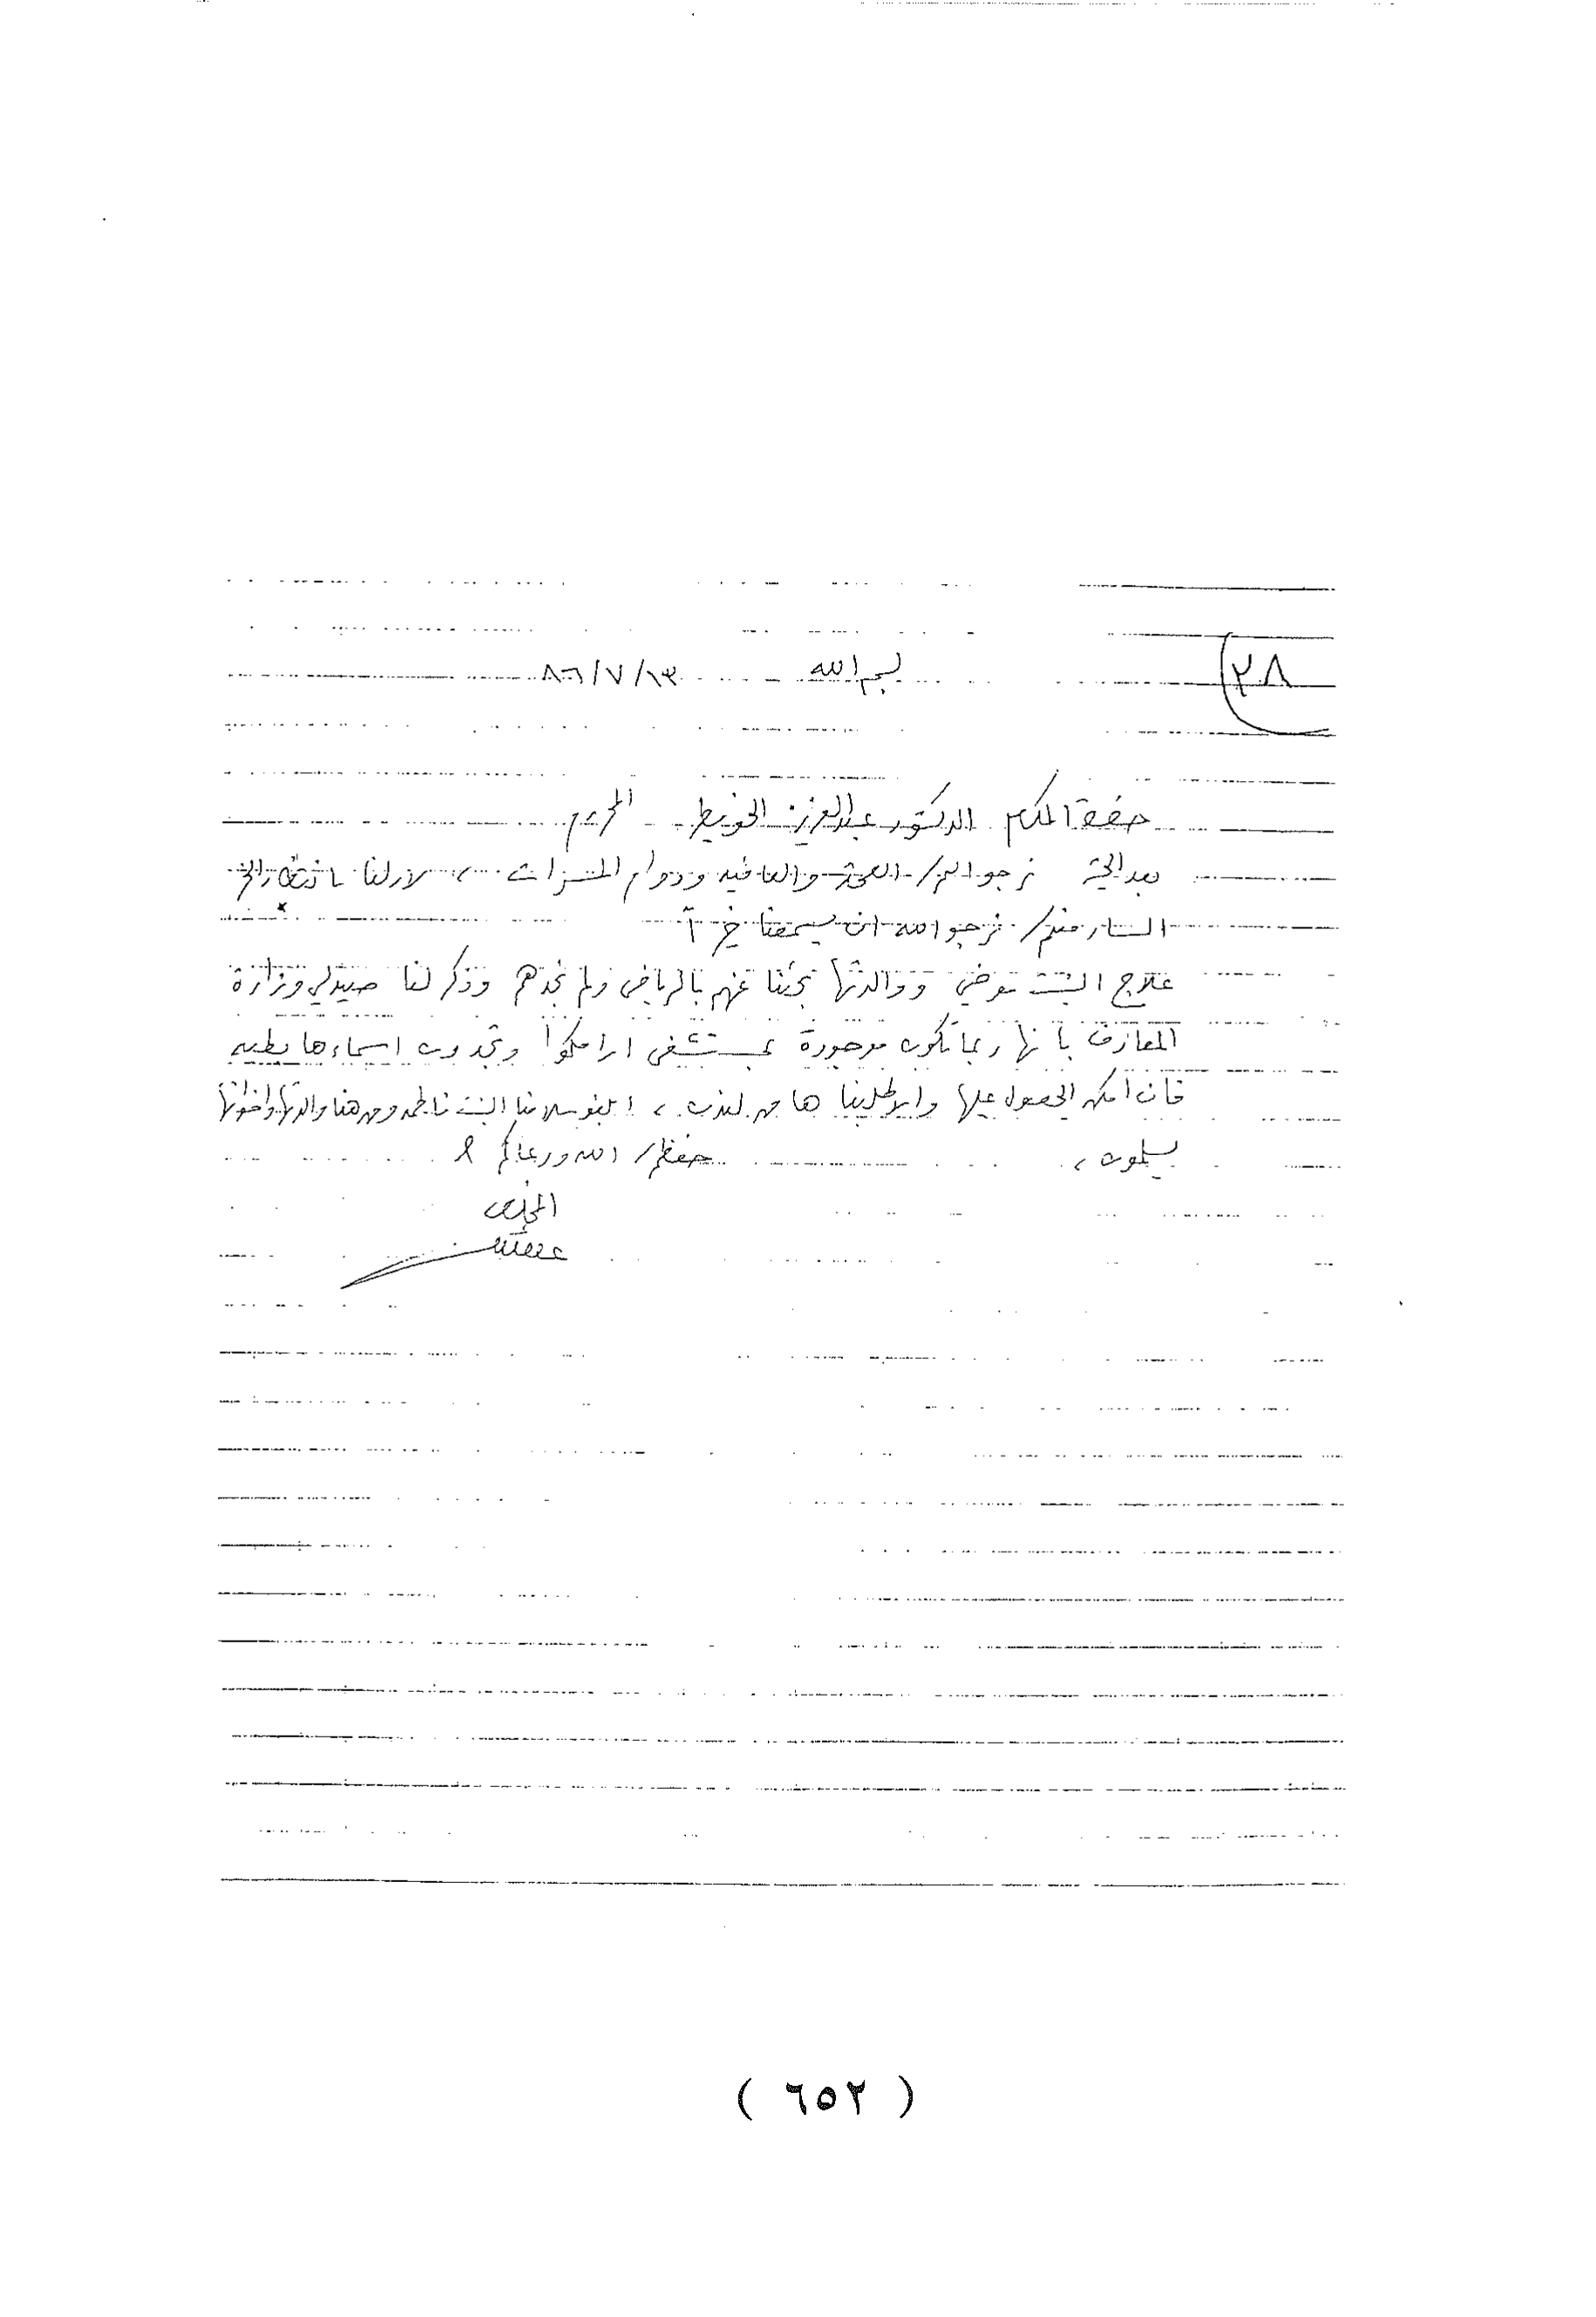 ٢٨
بسم الله ٨٦/٧/١٣
الدكتور عبدالعزيز الخويطر المحترم
بعد التحية نرجو لكم الصحة والعافيه ودوام المسرات ، لازلنا بانتظار الخبر
السار منكم نرجو الله ان
علاج البنت موضي ووالدتها بحثنا عنهم بالرياض ولم نجدهم وذكر لنا صيدلي وزارة
المعارف بأنها ربما تكون موجودة بمستشفى ارامكوا وتجدون اسماءها بطيه
فان امكن الحصول عليها والا طلبناها من لندن ، ابلغو سلامنا البنت فاطمه ومن هنا والدتها واخوانها
يسلمون ، حفظكم الله ورعاكم
المخلص
( ٦٥٢ )